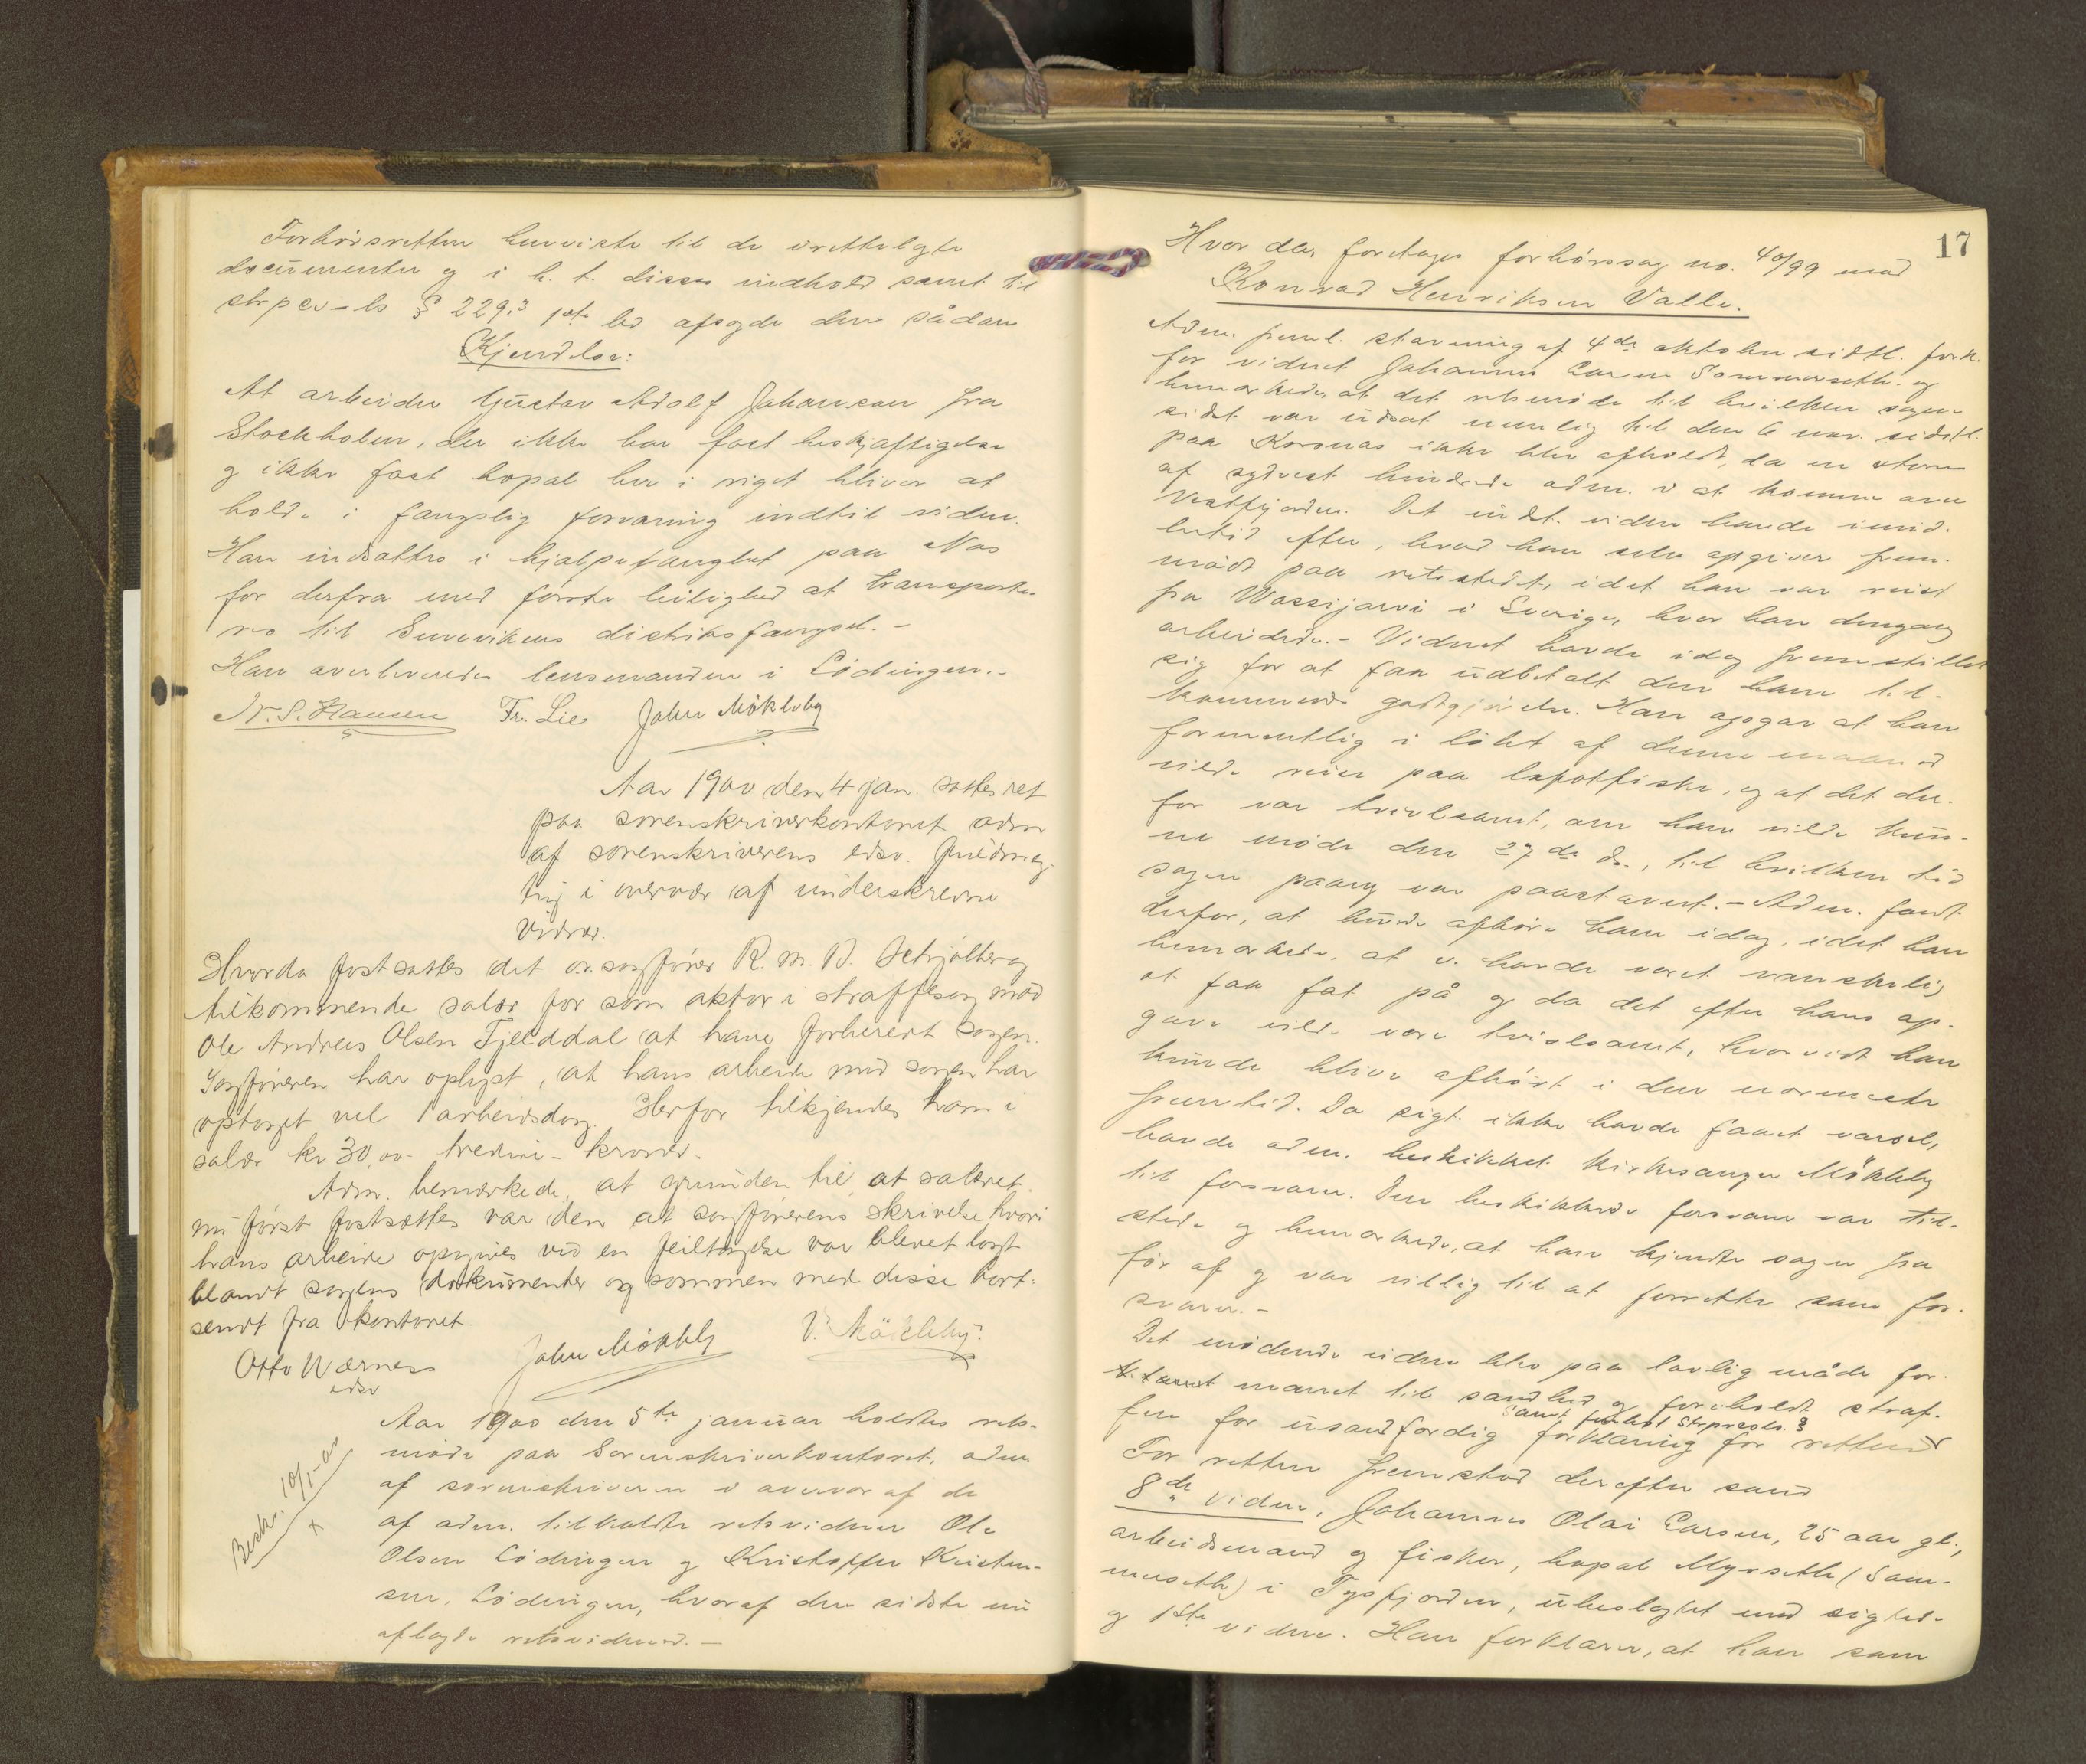 Forhørsretten henviste til de irettelagte
documenter og i h. t. disses indhold samt til
strpcs-ls § 229,3 1ste led afsagde den sådan
Kjendelse:
At arbeider Gustav Adolf Johansson fra
Stockholm, der ikke har fast beskjæftigelse
og ikke fast bopæl her i riget bliver at
holde i fængslig forvaring indtil videre.
Han indsættes i hjælpefængslet paa Næs
for derfra med første leilighed at transporte-
res til Svolvikens distriksfængsel. -
Han overleveredes lensmanden i Lødingen. -
N. S. Hansen Fr. Lie John Møkleby
Aar 1900 den 4 jan. sattes ret
paa sorenskriverkontoret adm
af sorenskriverens edsv. fuldmæg
tig i overvær af underskrevne
vidner.
Hvorda fastsattes det o.r. sagfører R. M. B. Schjølberg
tilkommende salær for som aktor i straffesag mod
Ole Andreas Olsen Fjelddal at have forberedt sagen.
Sagføreren har oplyst, at hans arbeide med sagen har
optaget vel 1 arbeidsdag. Herfor tilkjendes ham i
salær kr 30,00 - tredive - kroner.
Adm. bemærkede, at grunden til, at salæret
nu først fastsættes var den at sagførerens skrivelse hvori
hans arbeide opgives ved en feiltagelse var blevet lagt
blandt sagens dokumenter og sammen med disse bort-
sendt fra kontoret.
Otto Wærness John Møkleby V. Møkleby.
edsv
Aar 1900 den 5te januar holdtes rets-
møde paa Sorenskriverkontoret, adm
af sorenskriveren i overvær af de
af adm. tilkaldte retsvidner Ole
Olsen Lødingen og Kristoffer Kristen-
sen, Lødingen, hvoraf den sidste nu
aflagde retsvidneed. -
Besk. 10/1-00
x
17
Hvor da, foretages forhørssag no. 40/99 mod
Konrad Henriksen Valle.
Adm. freml. stævning af 4de oktober sidstl. fork.
for vidnet Johannes Larsen Sommerseth. og
bemærkede, at det retsmøde til hvilken sagen
sidst var udsat nemlig til den 6 nov. sidstl.
paa Korsnæs ikke blev afholdt, da en storm
af sydvest hindrede adm. i at komme over
Vestfjorden. Det indst. vidne havde imid-
lertid efter, hvad han selv opgiver frem-
mødt paa retsstedet, idet han var reist
fra Wassijarvi i Sverige, hvor han dengang
arbeidede. - Vidnet havde idag fremstillet
sig for at faa udbetalt den ham til-
kommende godtgjørelse. Han opgav at han
formentlig i løbet af denne maaned
vilde reise paa lofotfiske, og at det der-
for var tvivlsomt, om han vilde kun-
ne møde den 27de ds., til hvilken tid
sagen paany var paastævnt. - Adm. fandt
derfor, at burde afhøre ham idag, idet han
bemærkede, at v. havde været vanskelig
at faa fat på og da det efter hans op-
gave vilde være tvivlsomt, hvorvidt han
kunde blive afhørt i den nærmeste
fremtid. Da sigt. ikke havde faaet varsel,
havde adm. beskikket kirkesanger Møkleby
til forsvarer. Den beskikkede forsvarer var til-
stede og bemærkede, at han kjendte sagen fra
før af og var villig til at forrette som for-
svarer. -
Det mødende vidne blev paa lovlig måde for-
manet til sandhed og foreholdt straf-
samt forhol Strprcsls. §
fen for usandfærdig forklaring for retten
For retten fremstod derefter som
8de vidne, Johannes Olai Larsen, 25 aar gl.,
arbeidsmand og fisker, bopæl Myrseth (Som-
merseth) i Tysfjorden, ubeslægtet med sigtede
og 1ste vidne. Han forklarer, at han som